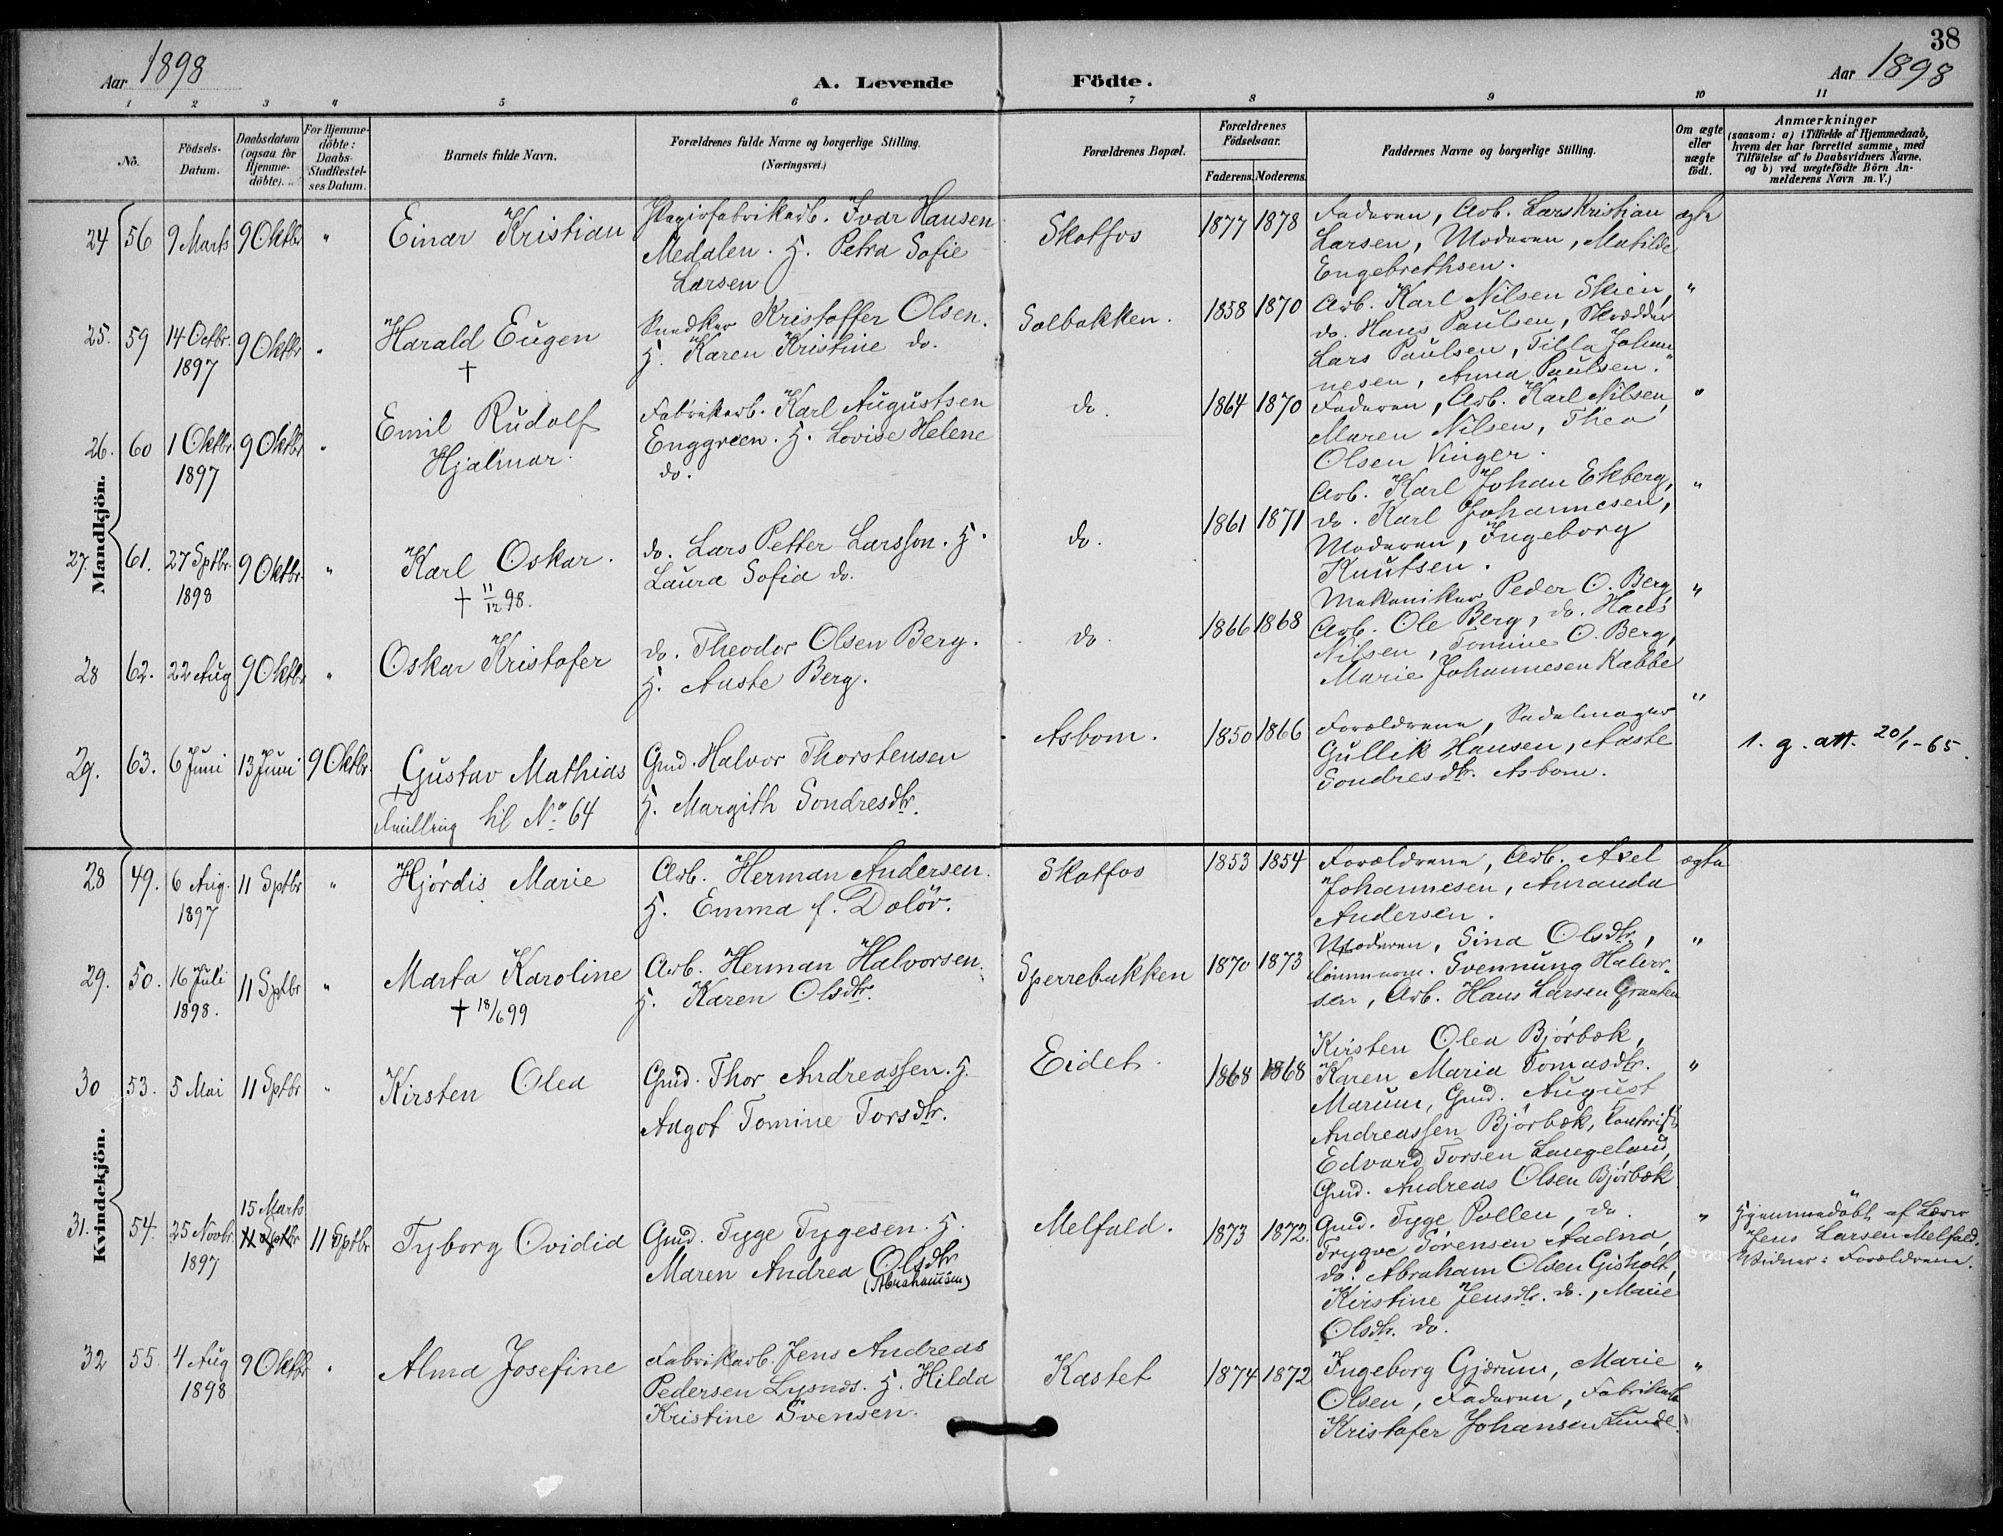 38
Aar 1898
A. Levende Födte.
Aar 1898
1 2 3 4 5 6 7 8 9 10 11
No.
Födsels-
Datum.
Daabsdatum
(ogsaa for
Hjemme-
döbte).
For Hjemme-
döbte:
Daabs-
Stadfæstel-
ses Datum.
Barnets fulde Navn.
Forældrenes fulde Navne og borgerlige Stilling.
(Næringsvei.)
Forældrenes Bopæl.
Forældrenes
Födselsaar.
Faderens. Moderens.
Faddernes Navne og borgerlige Stilling.
Om ægte
eller
uægte
födt.
Anmærkninger
(saasom: a) i Tilfælde af Hjemmedaab,
hvem der har forrettet samme, med
Tilföielse af to Daabsvidners Navne,
og b) ved uægtefödte Börn An-
melderens Navn m. V.)
Mandkjön.
24 56 9 Marts 9 Oktbr " Einar Kristian
Papirfabrikarb. Ivar Hansen
Medalen. H. Petra Sofie
Larsen
Skotfos 1877 1878
Faderen, Arb. Lars Kristian
Larsen, Moderen, Matilde
Engebrethsen.
ægte
25. 59 14 Octbr. 1897 9 Oktbr " Harald Eugen
†
Snedker Kristoffer Olsen.
H. Karen Kristine do.
Solbakken. 1858 1870
Arb. Karl Nilsen Skien,
do. Hans Paulsen, Skrædder
Lars Paulsen, Tilla Johan-
nesen, Anna Paulsen.
"
26. 60 1 Oktbr. 1897 9 Oktbr " Emil Rudolf
Hjalmar.
Fabrikarb. Karl Augustsen
Enggreen. H. Lovise Helene
do.
do. 1864 1870
Faderen, Arb. Karl Nilsen,
Maren Nilsen, Thea
Olsen Vinger.
"
27. 61. 27 Sptbr. 1898 9 Oktbr. " Karl Oskar.
† 11/12 98.
do. Lars Petter Larsson. H.
Laura Sofia do.
do. 1861 1871
Arb. Karl Johan Ekberg,
do. Karl Johannesen,
Moderen, Ingeborg
Knutsen.
"
28 62. 22 Aug 9 Oktbr " Oskar Kristofer
do. Theodor Olsen Berg.
H. Aaste Berg.
do. 1866 1868
Mekaniker Peder O. Berg,
Arb. Ole Berg, do. Hans
Nilsen, Tomine O. Berg,
Marie Johannesen Kabbe
"
29. 63. 6 Juni 13 Juni 9 Oktbr. Gustav Mathias
† Tvilling til No. 64
Gmd. Halvor Thorstensen
H. Margith Sondresdtr.
Asbom. 1850 1866
Forældrene, Sadelmager
Gullik Hansen, Aaste
Sondresdtr. Asbom.
"
1. g. att. 20/1-65.
Kvindekjön.
28 49. 6 Aug. 1897 11 Sptbr " Hjørdis Marie
Arb. Herman Andersen.
H. Emma f. Daløv.
Skotfos 1853 1854
Forældrene, Arb. Axel
Johannesen, Amanda
Andersen.
ægte
29. 50. 16 Juli 1898. 11 Sptbr " Marta Karoline
† 18/6 99
Arb. Herman Halvorsen.
H. Karen Olsdtr.
Sperrebakken 1870 1873
Moderen, Sina Olsdtr.,
Svennung Halvor-
sen, Arb. Hans Larsen Graaten
"
30 53. 5 Mai 11 Sptbr " Kirsten Olea
Gmd. Thor Andreassen. H.
Aagot Tomine Torsdtr.
Eidet. 1868 1868
Kirsten Olea Bjørbæk,
Karen Maria Tomasdtr.
Marum, Gmd. August
Andreassen Bjørbæk, Kontorist
Edvard Torsen Langeland,
Gmd. Andreas Olsen Bjørbæk
"
31. 54. 25 Novbr. 1897 15 Marts 11 Sptbr 11 Sptbr. Tyborg Ovidia
Gmd. Tyge Tygesen. H.
Maren Andrea Olsdtr
(Abrahamsen)
Melfald. 1873 1872.
Gmd. Tyge Pollen, do.
Trygve Sørensen Aadna,
do. Abraham Olsen Gisholt,
Kirstine Jensdtr. do., Marie
Olsdtr. do.
"
Hjemmedøbt af Lærer
Jens Larsen Melfald.
Vidner: Forældrene.
32 55. 4 Aug 1898 9 Oktbr " Alma Josefine
Fabrikarb. Jens Andreas
Pedersen Lysnæs. H. Hilda
Kristine Svensen.
Kastet 1874 1872
Ingeborg Gjærum, Marie
Olsen, Faderen, Fabrikarb.
Kristofer Johansen Lunde.
"